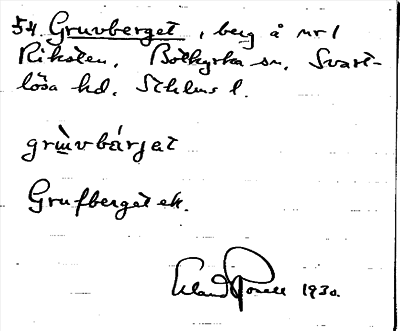 54. Gruvberget, berg å nr 1
Riksten, Botkyrka sn, Svart-
lösa hd. Sthlms l.
grùvbárjat
Grufberget ek.
Erland Rosell 1930.